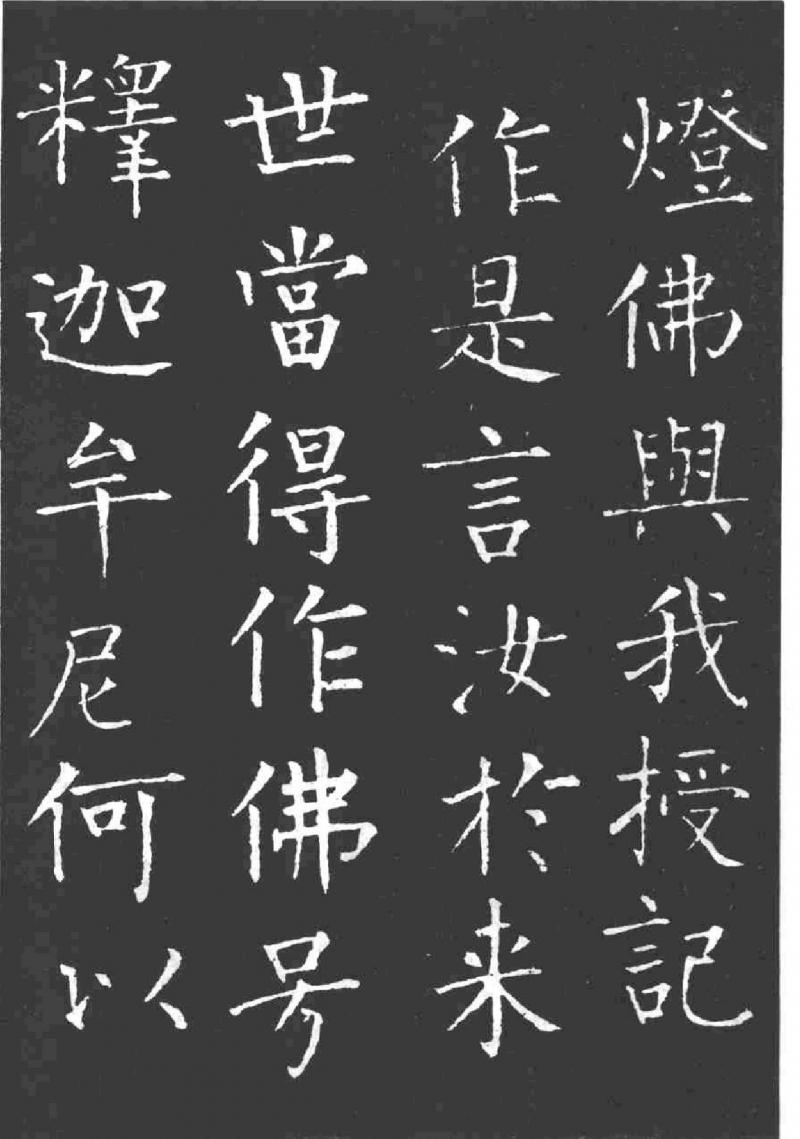 燈佛與我授記
作是言汝於来
世當得作佛号
釋迦牟尼何以